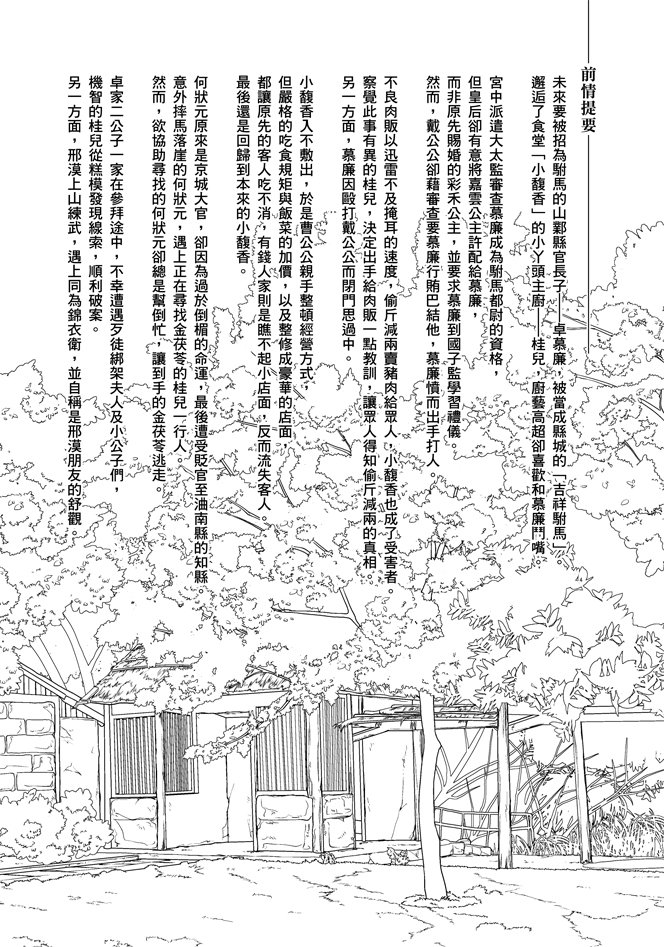 前情提要
未來要被招為駙馬的山鄴縣官長子──卓慕廉，被當成縣城的「吉祥駙馬」。
邂逅了食堂「小馥香」的小丫頭主廚──桂兒，廚藝高超卻喜歡和慕廉鬥嘴。
宮中派遣大太監審查慕廉成為駙馬都尉的資格，
但皇后卻有意將嘉雲公主許配給慕廉，
而非原先賜婚的彩禾公主，並要求慕廉到國子監學習禮儀。
然而，戴公公卻藉審查要慕廉行賄巴結他，慕廉憤而出手打人。
不良肉販以迅雷不及掩耳的速度，偷斤減兩賣豬肉給眾人，小馥香也成了受害者。
察覺此事有異的桂兒，決定出手給肉販一點教訓，讓眾人得知偷斤減兩的真相。
另一方面，慕廉因毆打戴公公而閉門思過中。
小馥香入不敷出，於是曹公公親手整頓經營方式，
但嚴格的吃食規矩與飯菜的加價，以及整修成豪華的店面，
都讓原先的客人吃不消，有錢人家則是瞧不起小店面，反而流失客人。
最後還是回歸到本來的小馥香。
何狀元原來是京城大官，卻因為過於倒楣的命運，最後遭受貶官至油南縣的知縣。
意外摔馬落崖的何狀元，遇上正在尋找金茯苓的桂兒一行人。
然而，欲協助尋找的何狀元卻總是幫倒忙，讓到手的金茯苓逃走。
卓家二公子一家在參拜途中，不幸遭遇歹徒綁架夫人及小公子們，
機智的桂兒從糕模發現線索，順利破案。
另一方面，邢漠上山練武，遇上同為錦衣衛，並自稱是邢漠朋友的舒觀。